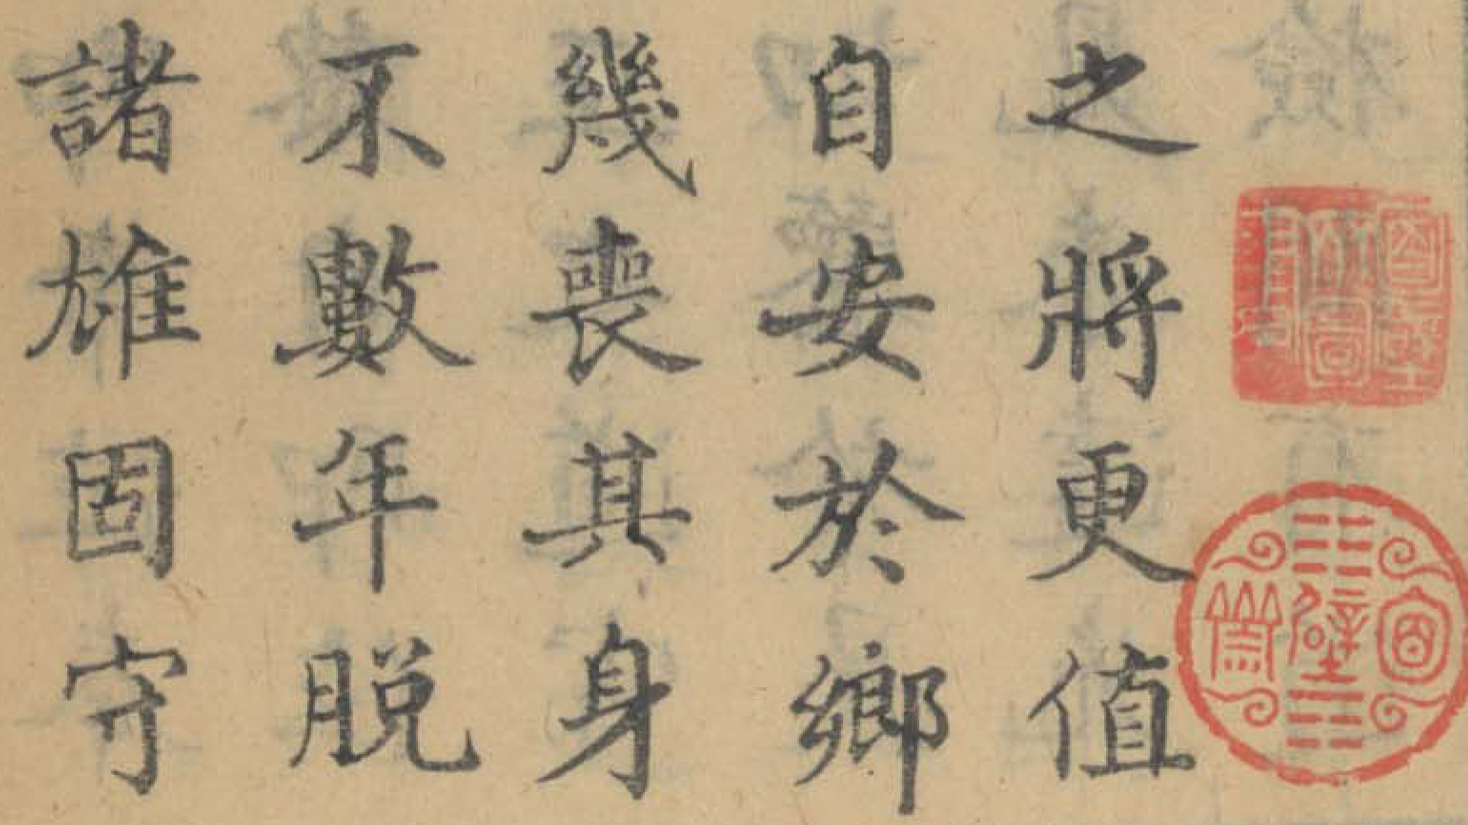 之將更值
自安於鄉
幾喪其身
不數年脫
諸雄固守